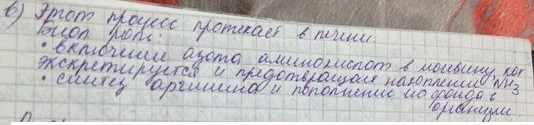 в) Этот процесс протекает в печени
Биол роль:
• включение азота аминокислот в мочевину, кот
экскретируется и предотвращая накопление NH3
• синтез аргинина и пополнение его фонда в
организм.